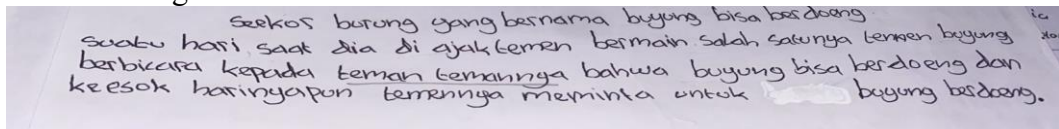 Seekor burung yang bernama buyung bisa berdoeng
suatu hari saat dia di ajak temen bermain salah satunya temen buyung
berbicara kepada teman temannya bahwa buyung bisa berdoeng dan
keesok harinyapun temennya meminta untuk buyung berdoeng.